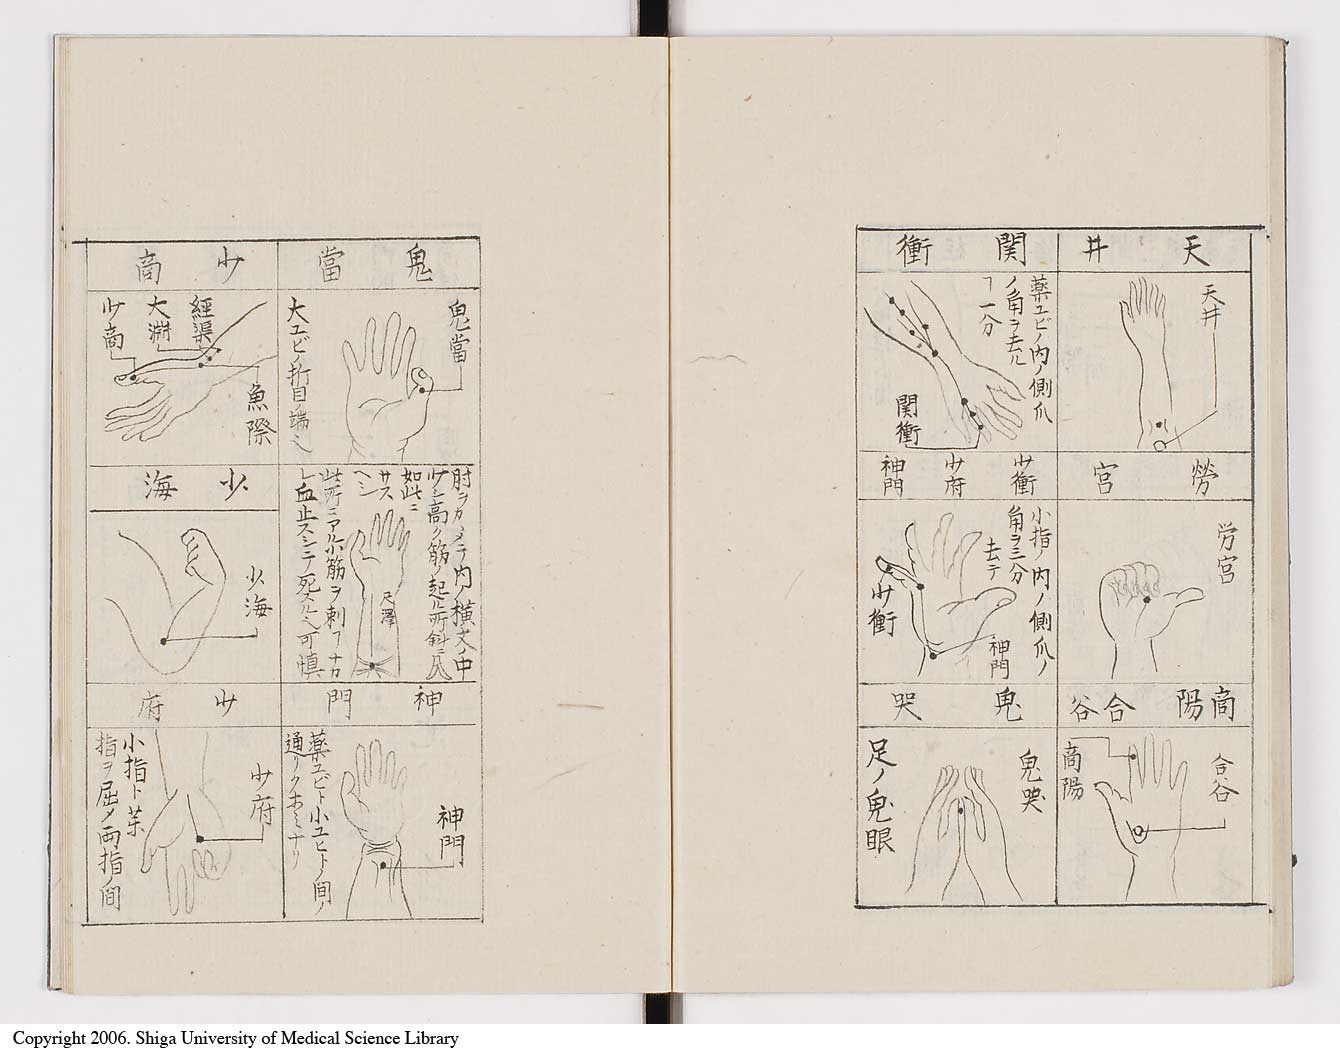 天井
天井
関衝
薬ユビノ内ノ側爪
ノ角ヲ去ル
ヿ一分
関衝
勞宮
労宮
少衝
少府
神門
小指ノ内ノ側爪ノ
角ヲ三分
去テ
少衝
神門
商陽
合谷
合谷
商陽
鬼哭
鬼哭
足ノ鬼眼
鬼當
鬼當
大ユビノ折目ノ端
少商
經渠
大淵
少商
魚際
肘ヲカヽメテ内ノ横文ノ中
少シ高ク筋ノ起ル所斜ニ
如此ニ
サス
ヘシ
尺澤
此所ニアル小筋ヲ刺フナカ
レ血止スシテ死スル 可慎
少海
少海
神門
神門
薬ユビト小ユヒトノ間ノ
通リクホミナリ
少府
少府
小指ト茱
指ヲ屈メ両指ノ間
Copyright 2006. Shiga University of Medical Science Library